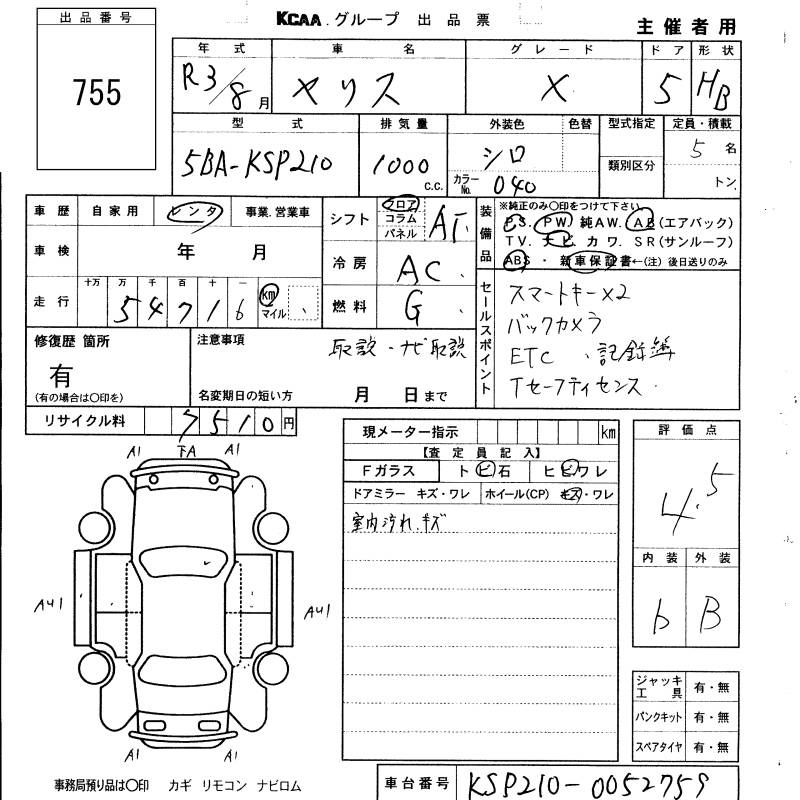 KCAA グループ 出品票
主催者用
出品番号
755
年式 車名 グレード ドア 形状
R3/8月 ヤリス X 5 HB
型式 排気量 外装色 色替 型式指定 定員・積載
5BA-KSP210 1000 c.c. シロ 類別区分 5名
カラーNo. 040 トン
車歴 自家用 レンタ 事業.営業車
車検 年 月
走行 十万 万 千 百 十 一 km マイル
5 4 7 1 6
シフト フロア コラム パネル AT
冷房 AC
燃料 G
装備品 ※純正のみ〇印をつけて下さい
PS. PW 純AW. AB (エアバック)
TV. ナビ. カワ. SR (サンルーフ)
ABS ・ 新車保証書←(注) 後日送りのみ
セールスポイント
スマートキー×2
バックカメラ
ETC 、記録簿
Tセーフティセンス
修復歴 箇所
有
(有の場合は〇印を)
注意事項
取説・ナビ取説
名変期日の短い方 月 日まで
リサイクル料 7510円
現メーター指示 km
【査定員記入】
Fガラス トビ石 ヒビワレ
ドアミラー キズ・ワレ ホイール(CP) キズ・ワレ
室内汚れ.キズ
評価点
4.5
内装 外装
b B
A1 下A A1
AU1 AU1
A1 A1
ジャッキ工具 有・無
パンクキット 有・無
スペアタイヤ 有・無
事務局預り品は〇印 カギ リモコン ナビロム
車台番号 KSP210-0052759